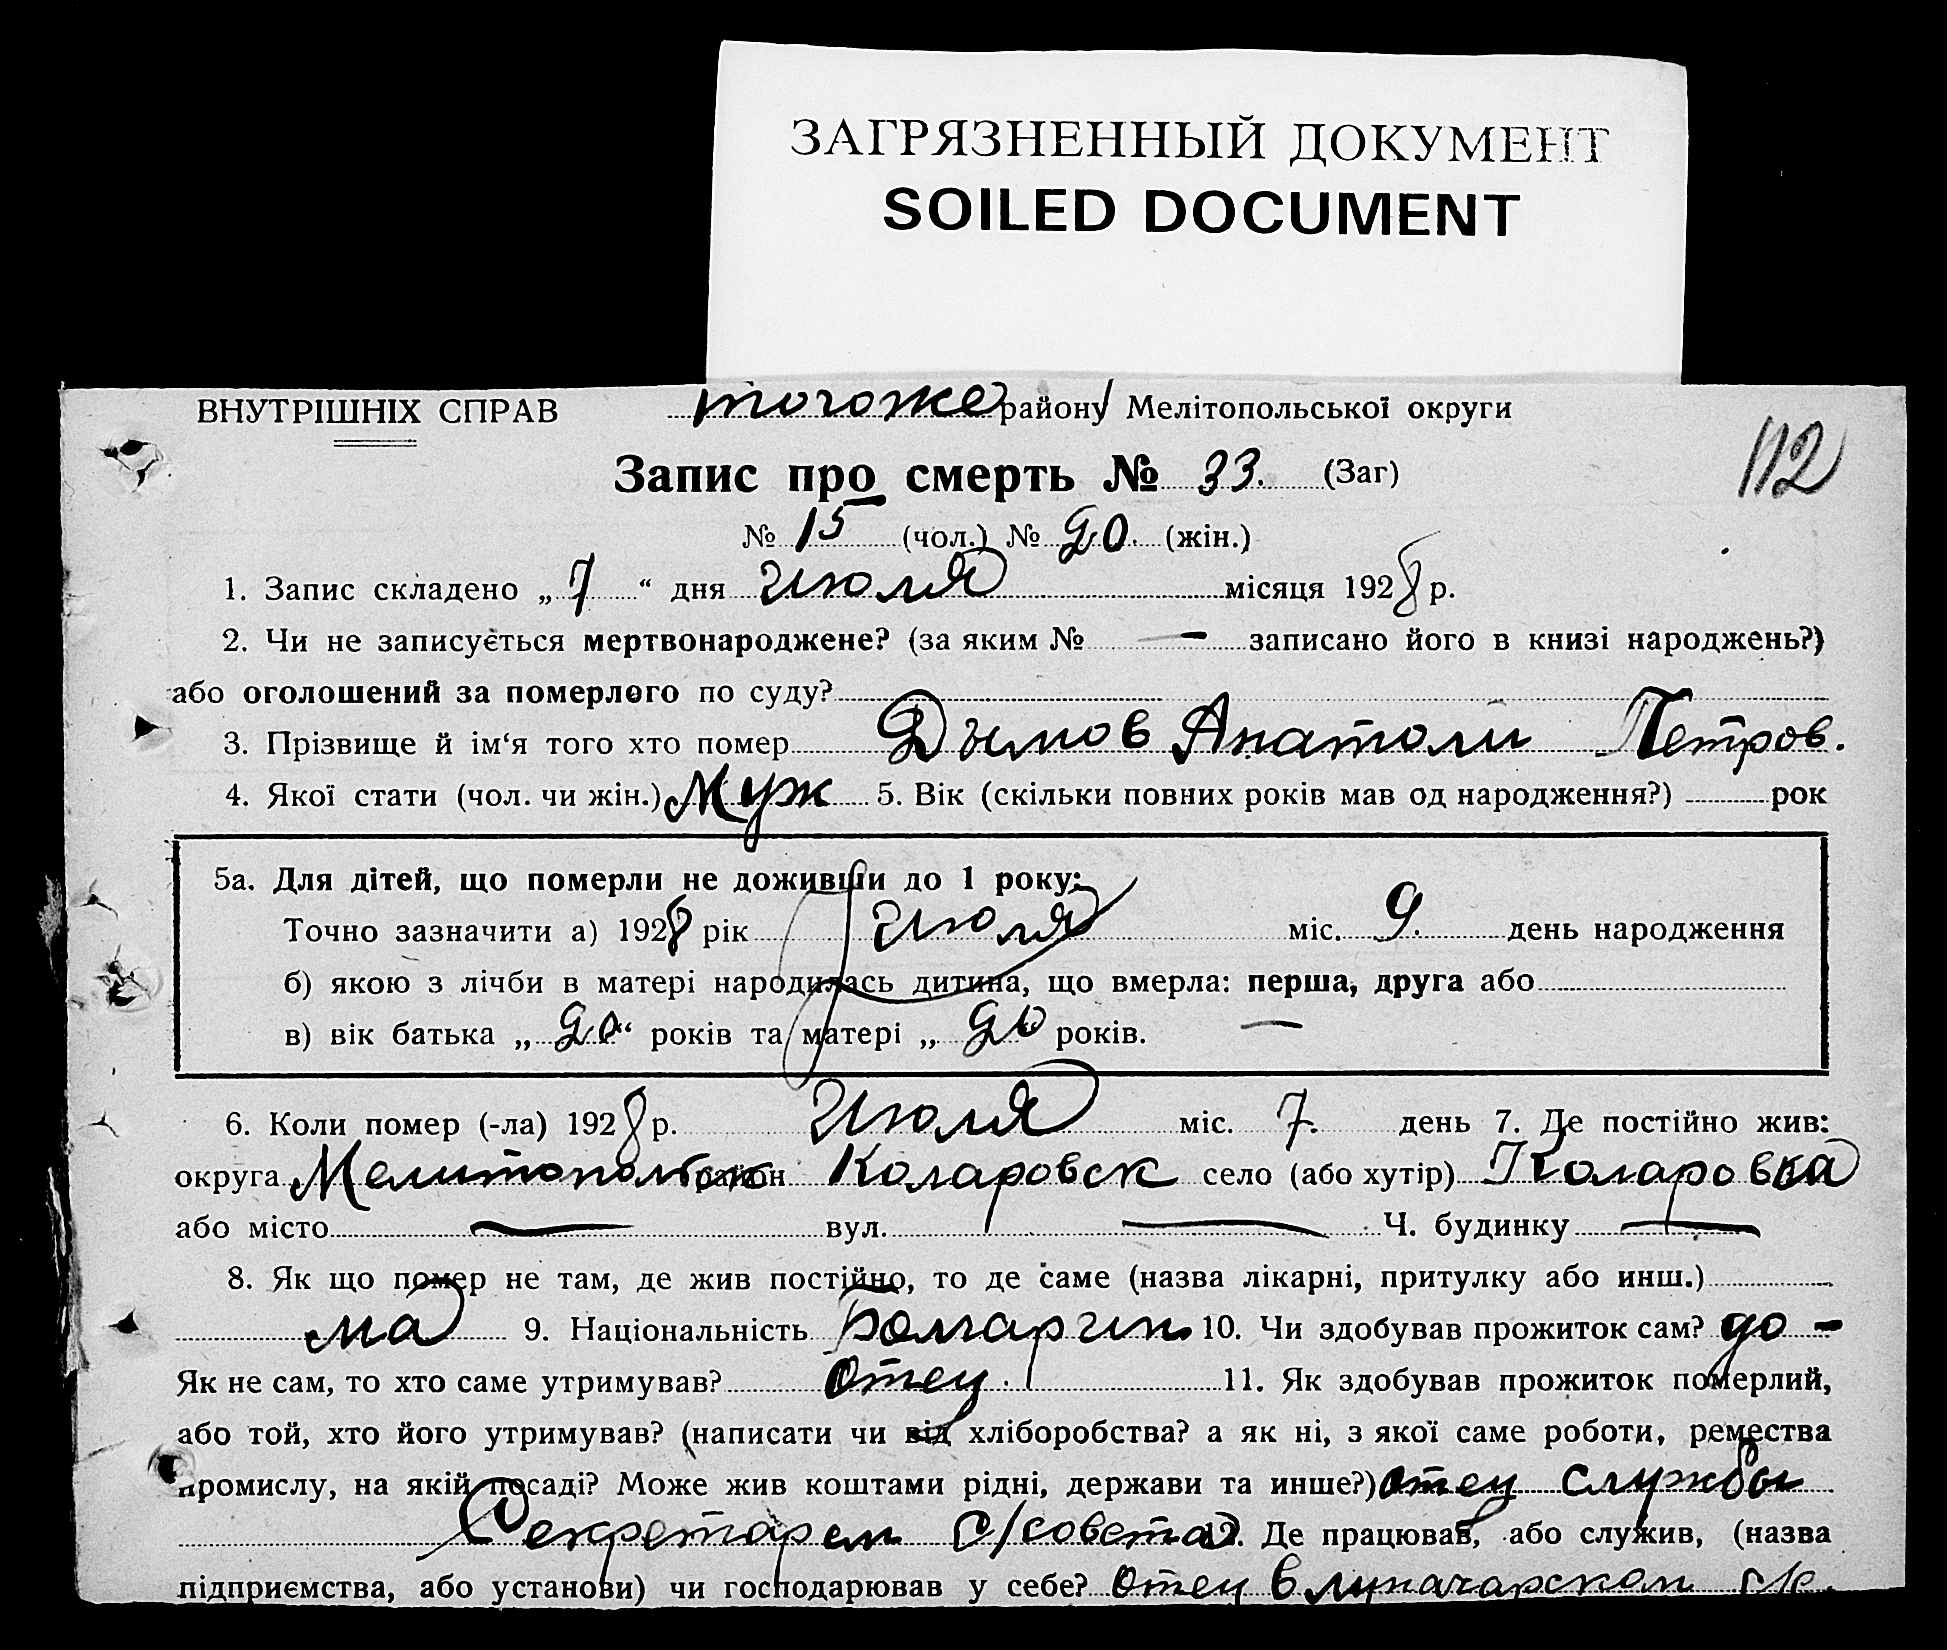 ЗАГРЯЗНЕННЫЙ ДОКУМЕНТ
SOILED DOCUMENT
ВНУТРІШНІХ СПРАВ тогоже району Мелітопольської округи
112
Запис про смерть № 33. (Заг)
№ 15 (чол.) № 20. (жін.)
1. Запис складено „7“ дня Июля місяця 1928 р.
2. Чи не записується мертвонароджене? (за яким № — записано його в книзі народжень?)
або оголошений за померлого по суду?
3. Прізвище й ім‘я того хто помер Дымов Анатоли Петров.
4. Якої стати (чол. чи жін.) Муж 5. Вік (скільки повних років мав од народження?) рок
5а. Для дітей, що померли не доживши до 1 року:
Точно зазначити а) 1928 рік Июля міс. 9. день народження
б) якою з лічби в матері народилась дитина, що вмерла: перша, друга або
в) вік батька „20“ років та матері „20 років. —
6. Коли помер (-ла) 1928 р. Июля міс. 7. день 7. Де постійно жив:
округа Мелитопольск район Коларовск село (або хутір) Коларовка
або місто — вул. — Ч. будинку —
8. Як що помер не там, де жив постійно, то де саме (назва лікарні, притулку або инш.)
9. Національність Болгарин 10. Чи здобував прожиток сам?
Як не сам, то хто саме утримував? Отец. 11. Як здобував прожиток померлий,
або той, хто його утримував? (написати чи від хліборобства? а як ні, з якої саме роботи, ремества
промислу, на якій посаді? Може жив коштами рідні, держави та инше?) отец службы
Секретарем с/совета 12. Де працював, або служив, (назва
підприємства, або установи) чи господарював у себе? Отец в луначарском